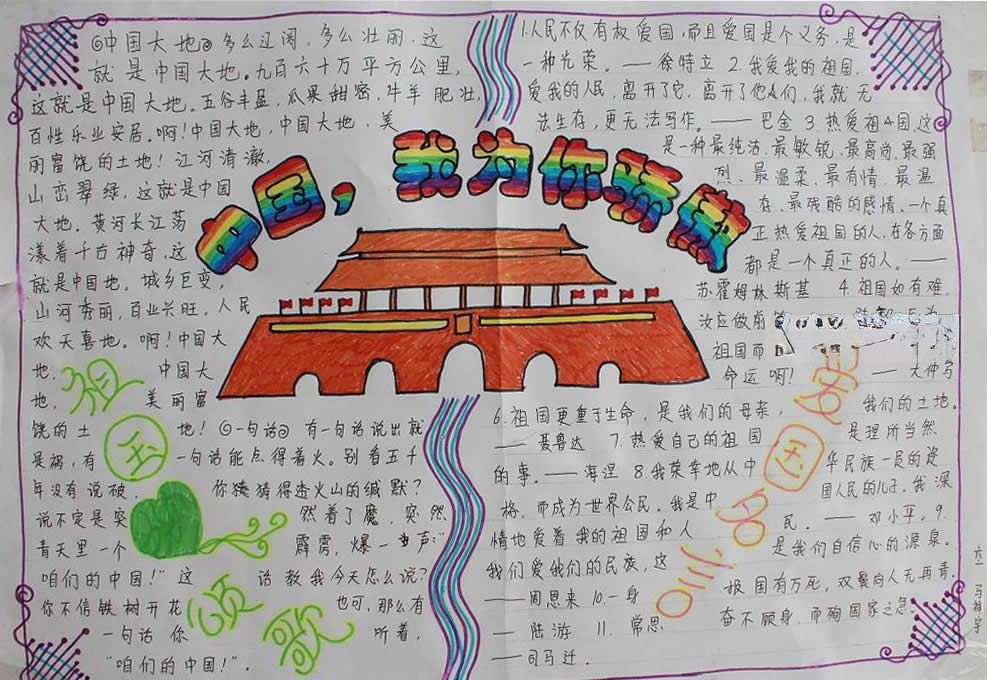 中国，我为你骄傲
《中国大地》多么辽阔，多么壮丽，这
就是中国大地。九百六十万平方公里，
这就是中国大地。五谷丰盈，瓜果甜密，牛羊肥壮，
百性乐业安居。啊！中国大地，中国大地、美
丽富饶的土地！江河清澈，
山峦翠绿，这就是中国
大地。黄河长江荡
漾着千古神奇，这
就是中国地。城乡巨变，
山河秀丽，百业兴旺，人民
欢天喜地。啊！中国大
地，中国大
地，美丽富
饶的土地！《一句话》有一句话说出就
是祸，有一句话能点得着火。别看五千
年没有说破，你猜猜得透火山的缄默？
说不定是突然着了魔，突然
青天里一个霹雳，爆一声：“
咱们的中国！”这话教我今天怎么说？
你不信铁树开花也可，那么有
一句话你听着，
“咱们的中国！”。
祖国颂歌
1.人民不仅有权爱国，而且爱国是个义务，是
一种光荣。——徐特立 2.我爱我的祖国，
爱我的人民，离开了它，离开了他们，我就无
法生存，更无法写作。——巴金 3.热爱祖国，这
是一种最纯洁、最敏锐、最高尚、最强
烈、最温柔、最有情、最温
存、最残酷的感情。一个真
正热爱祖国的人，在各方面
都是一个真正的人。——
苏霍姆林斯基 4.祖国如有难，
汝应做前
祖国而
命运啊？——大仲马
6.祖国更重于生命，是我们的母亲，我们的土地。
——聂鲁达 7.热爱自己的祖国是理所当然
的事。——海涅 8.我荣幸地从中华民族一员的资
格，而成为世界公民。我是中国人民的儿子。我深
情地爱着我的祖国和人民。——邓小平。9.
我们爱我们的民族，这是我们自信心的源泉。
——周恩来 10.一身报国有万死，双鬓向人无再青。
——陆游 11.常思奋不顾身，而殉国家之急。
——司马迁.
六一 马